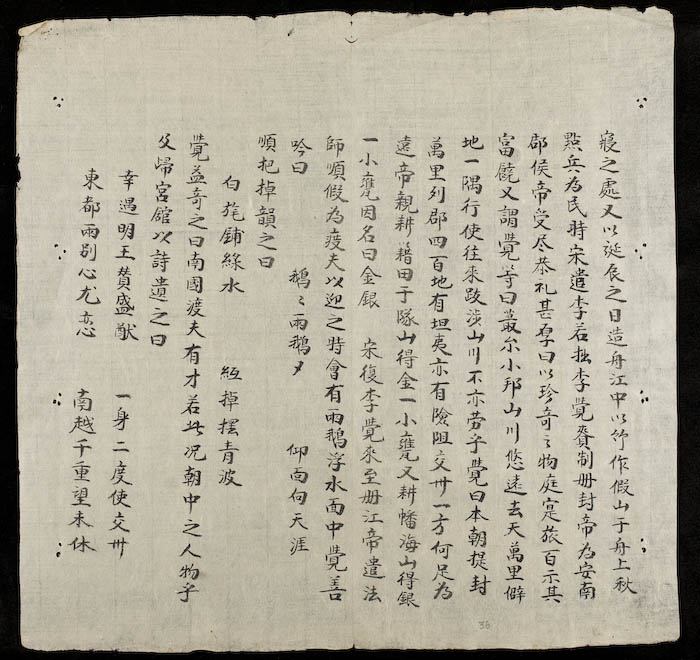 寢之處又以誕辰之日造舟江中以竹作假山于舟上秋
㸃兵為民時宋遣李若拙李覺賫制册封帝為安南
郡侯帝受尽恭礼甚厚曰以珍奇之物庭寔旅百示其
富饒又謂覺等曰蕞尔小邦山川悠遠去天萬里僻
地一隅行使往來跋涉山川不亦劳乎覺曰本朝提封
萬里列郡四百地有坦夷亦有險阻交州一方何足為
遠帝親耕籍田于隊山得金一小甕又耕蟠海山得銀
一小甕因名曰金銀 宋復李覺來至册江帝遣法
師順假為疫夫以迎之時會有兩鵝浮水面中覺善
吟曰 鵝〻兩鵝〻 仰面向天涯
順把棹韻之曰
白旄鋪綠水 紅棹擺青波
覺益奇之曰南國渡夫有才若此况朝中之人物乎
歸宮館以詩遺之曰
幸遇明王賛盛猷 一身二度使交州
東都兩別心尤恋 南越千重望未休
36